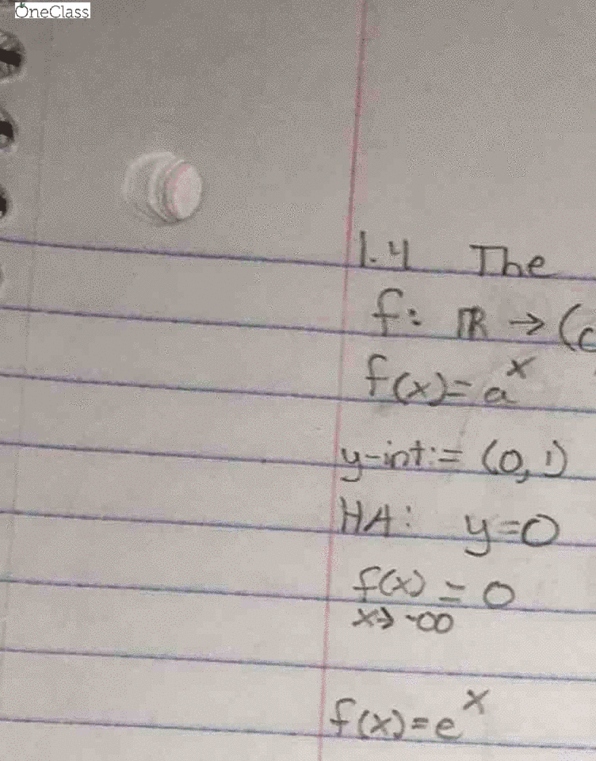 OneClass
1.4 The
f: ℝ → (
f(x)= aˣ
y-int:= (0,1)
HA: y=0
f(x) = 0
x→ -∞
f(x)=eˣ